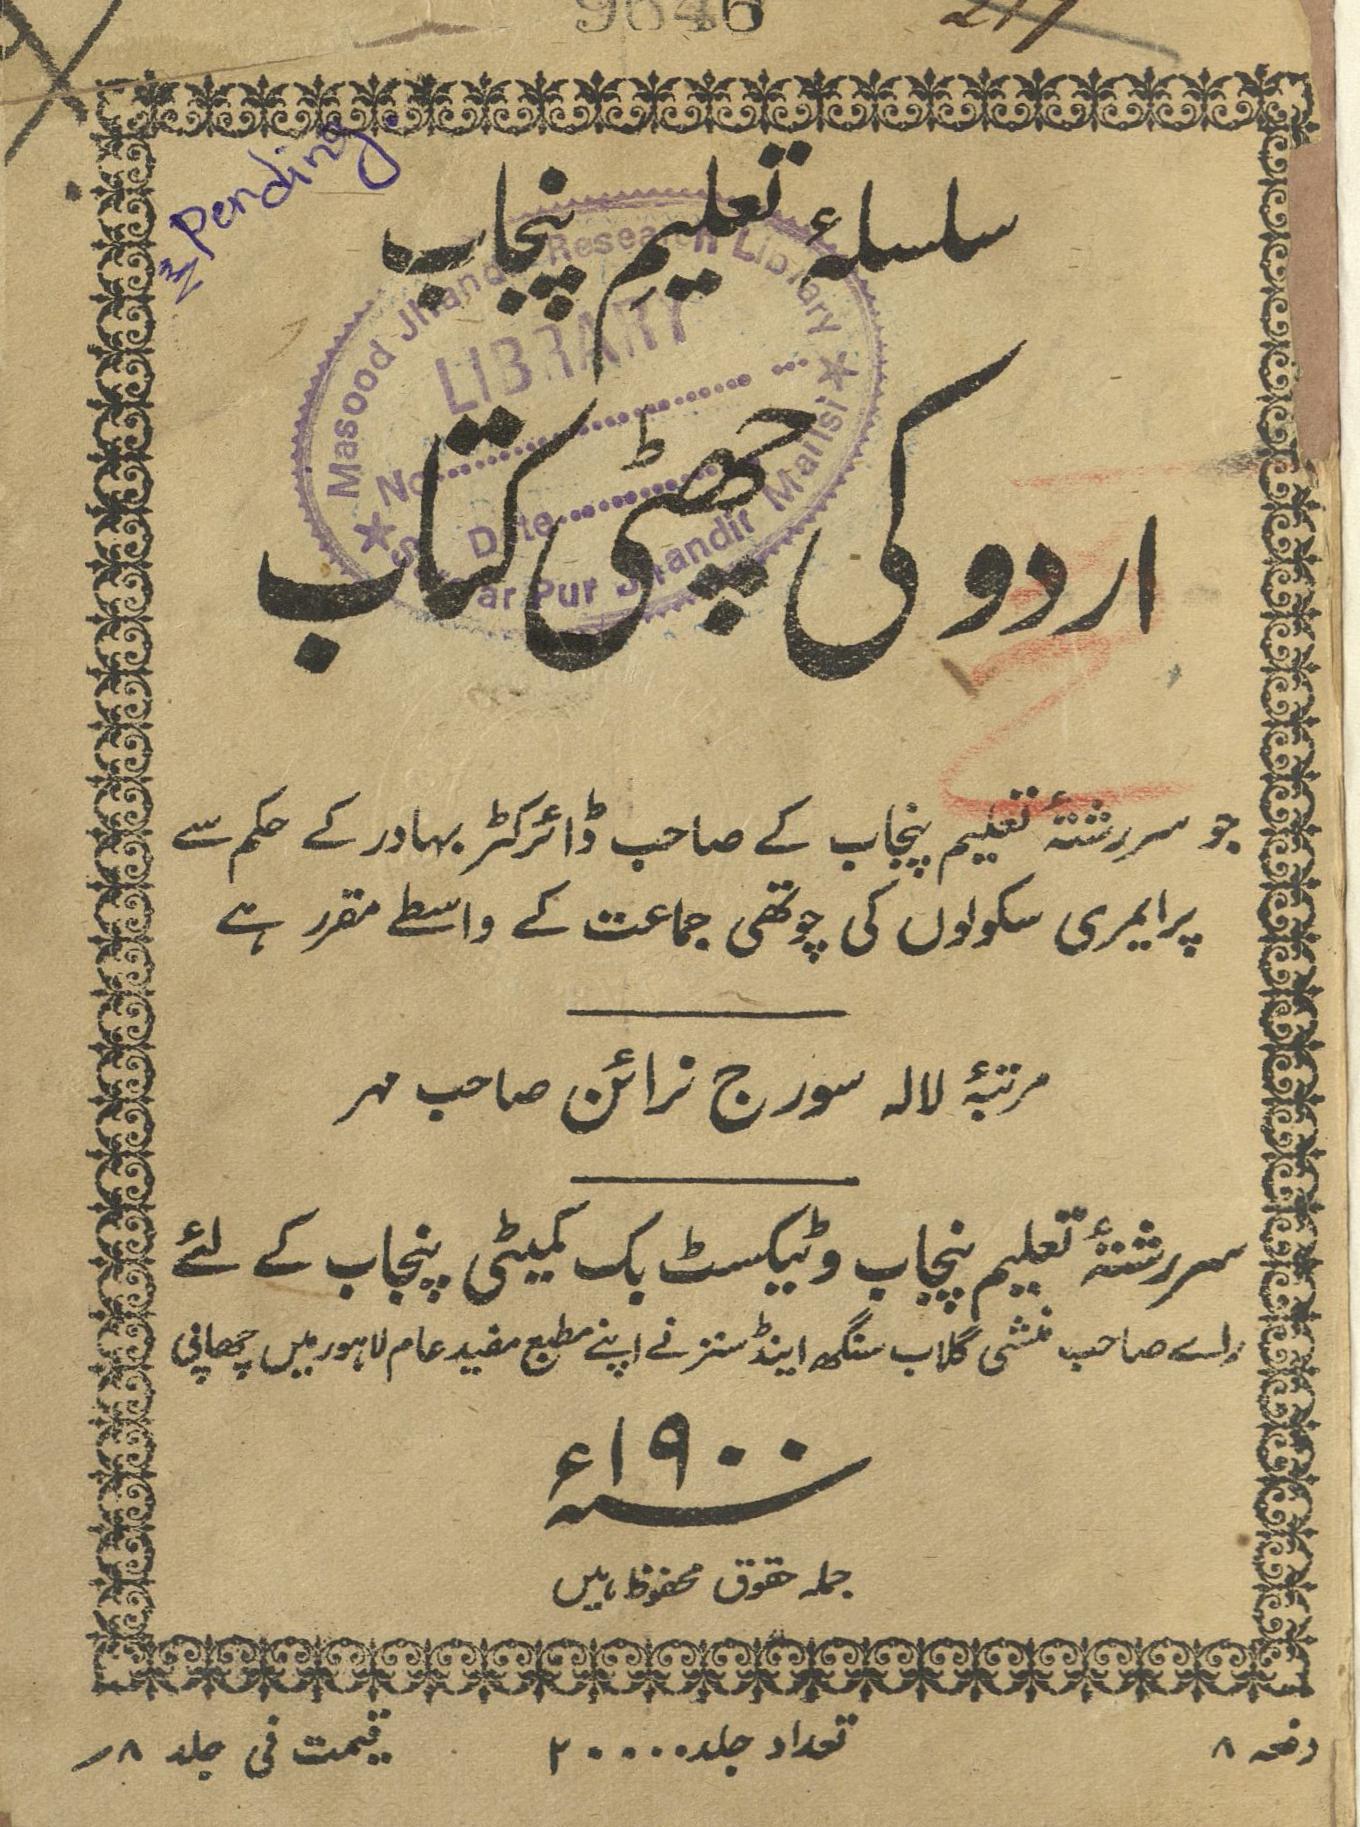 9646
217
Pending
سلسلۂ تعلیمِ پنجاب
Masood Jhandir Research Library
LIBRARY
No
Date
Sardar Pur Jhandir Mailsi
اردو کی چھٹی کتاب
جو سررشتۂ تعلیم پنجاب کے صاحب ڈائرکٹر بہادر کے حکم سے
پرایمری سکولوں کی چوتھی جماعت کے واسطے مقرر ہے
مرتبۂ لالہ سورج نرائن صاحب مہر
سررشتۂ تعلیم پنجاب و ٹیکسٹ بک کمیٹی پنجاب کے لئے
راے صاحب منشی گلاب سنگھ اینڈ سنز نے اپنے مطبع مفید عام لاہور میں چھاپی
سنہ ۱۹۰۰ء
جملہ حقوق محفوظ ہیں
دفعہ ۸
تعداد جلد ۲۰۰۰۰
قیمت فی جلد ۸ر